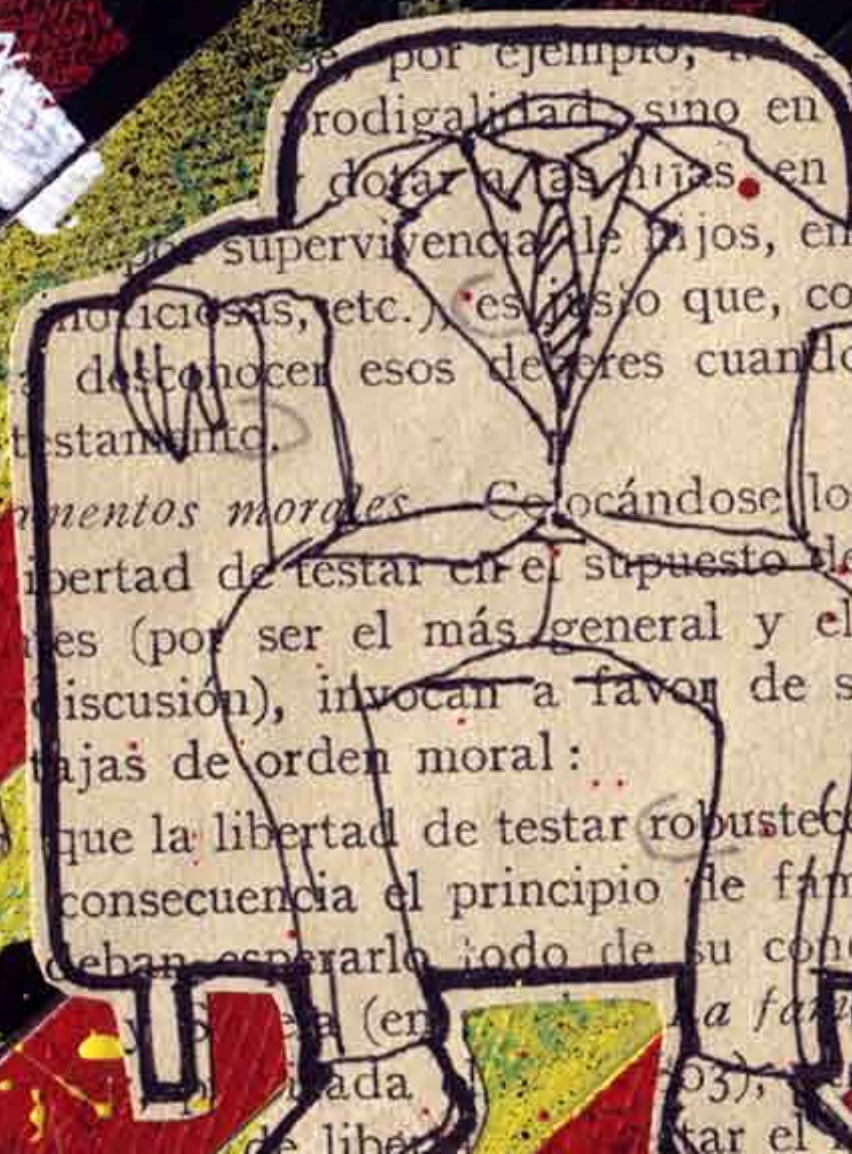 se, por ejemplo,
prodigalidad, sino en
dotar a las hijas en
por supervivencia de hijos, en
noticiosas, etc.), es justo que, co
desconocer esos deberes cuando
testamento.
mentos morales Colocándose lo
ibertad de testar en el supuesto de
es (por ser el más general y el
discusión), invocan a favor de s
tajas de orden moral:
que la libertad de testar robustec
consecuencia el principio de fam
deban esperarlo todo de su con
y (en la fam
ada 03),
de liber tar el